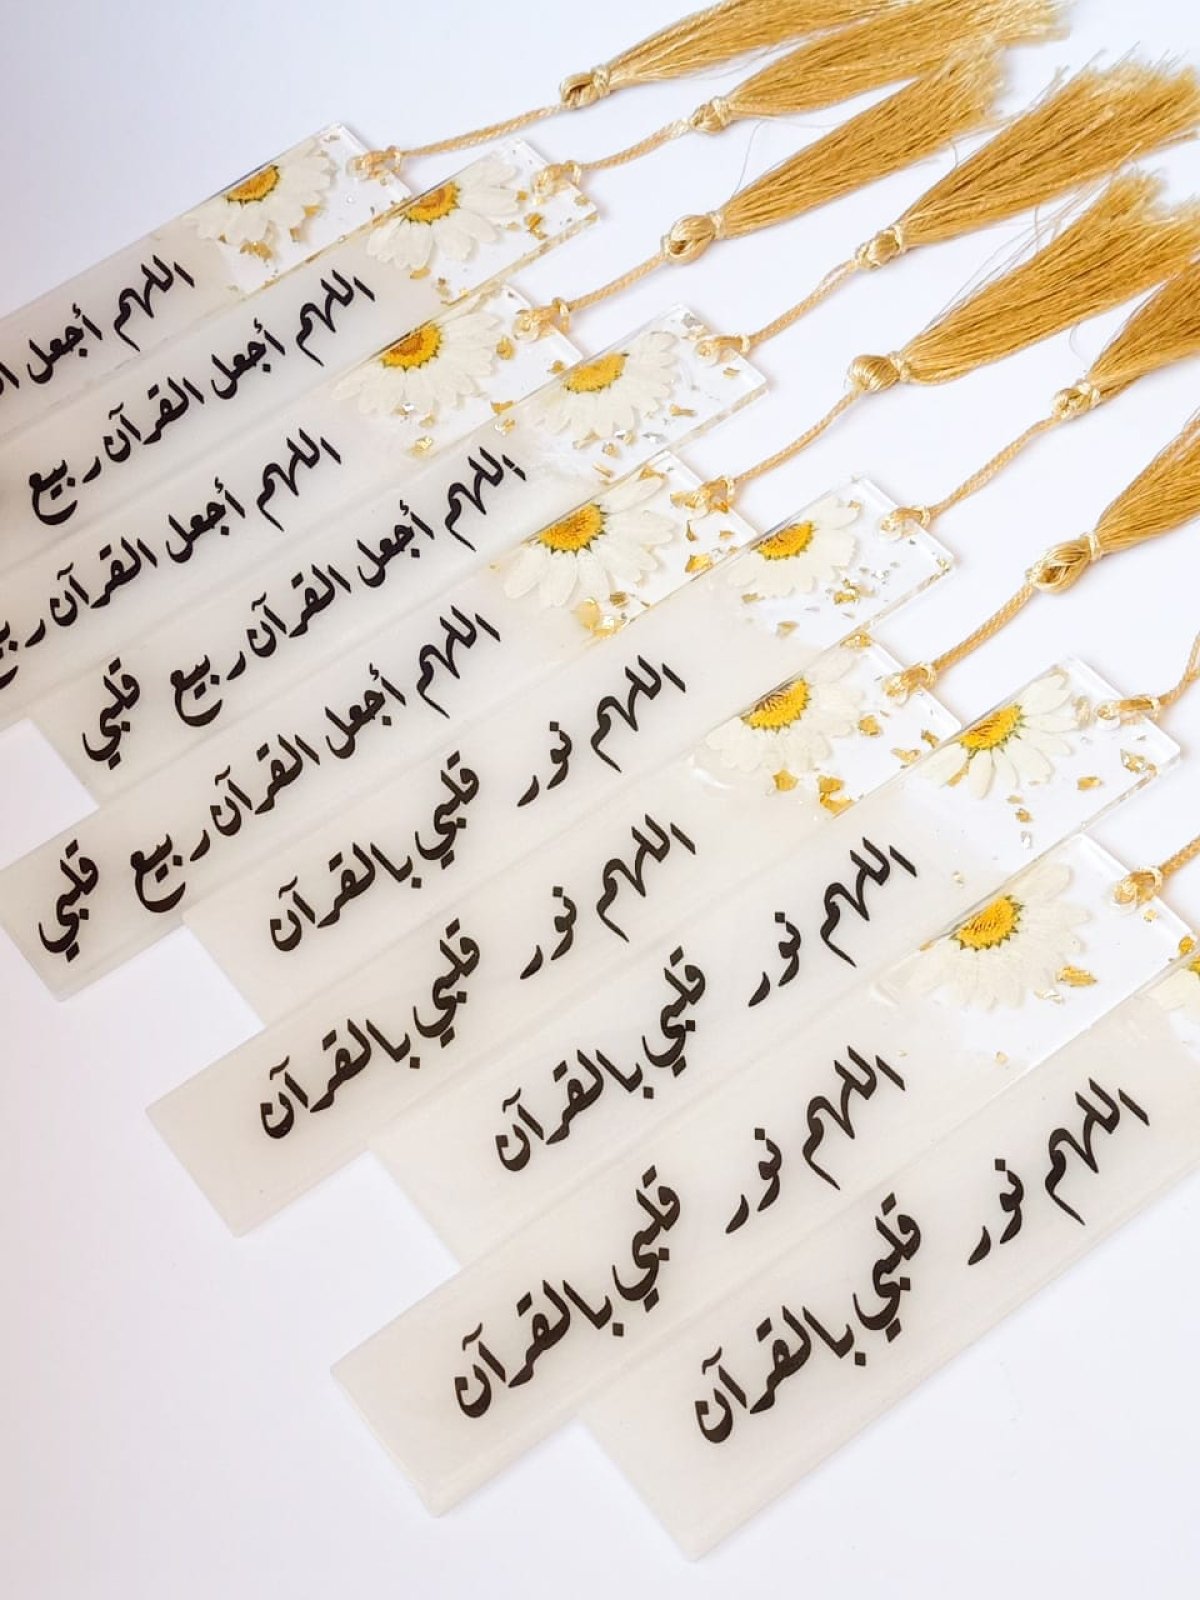 اللهم أجعل ال
اللهم أجعل القرآن ربيع
اللهم أجعل القرآن ربيع
اللهم أجعل القرآن ربيع قلبي
اللهم أجعل القرآن ربيع قلبي
اللهم نور قلبي بالقرآن
اللهم نور قلبي بالقرآن
اللهم نور قلبي بالقرآن
اللهم نور قلبي بالقرآن
اللهم نور قلبي بالقرآن